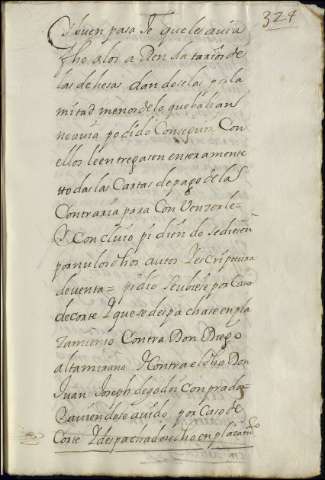 324
que les avia
fho. a los arrendatarios de
las dehesas dandoselas por la
mitad menos de lo que balian
no avia podido Conseguir Con
ellos le entregasen enteramente
todas las Cartas de pago de la
Contraria para Convenzerle
Y Concluio pidiendo se diesen
por nulos dhos autos Y escriptura
de venta = pidio se ubiese por Caso
de corte Y que se despachase enpla
zamiento Contra Don Diego
altamirano Y Contra el dho Don
Juan Joseph de godoi conprador =
Y aviendose avido por Caso de
Corte Y despachadose dho enplazamto